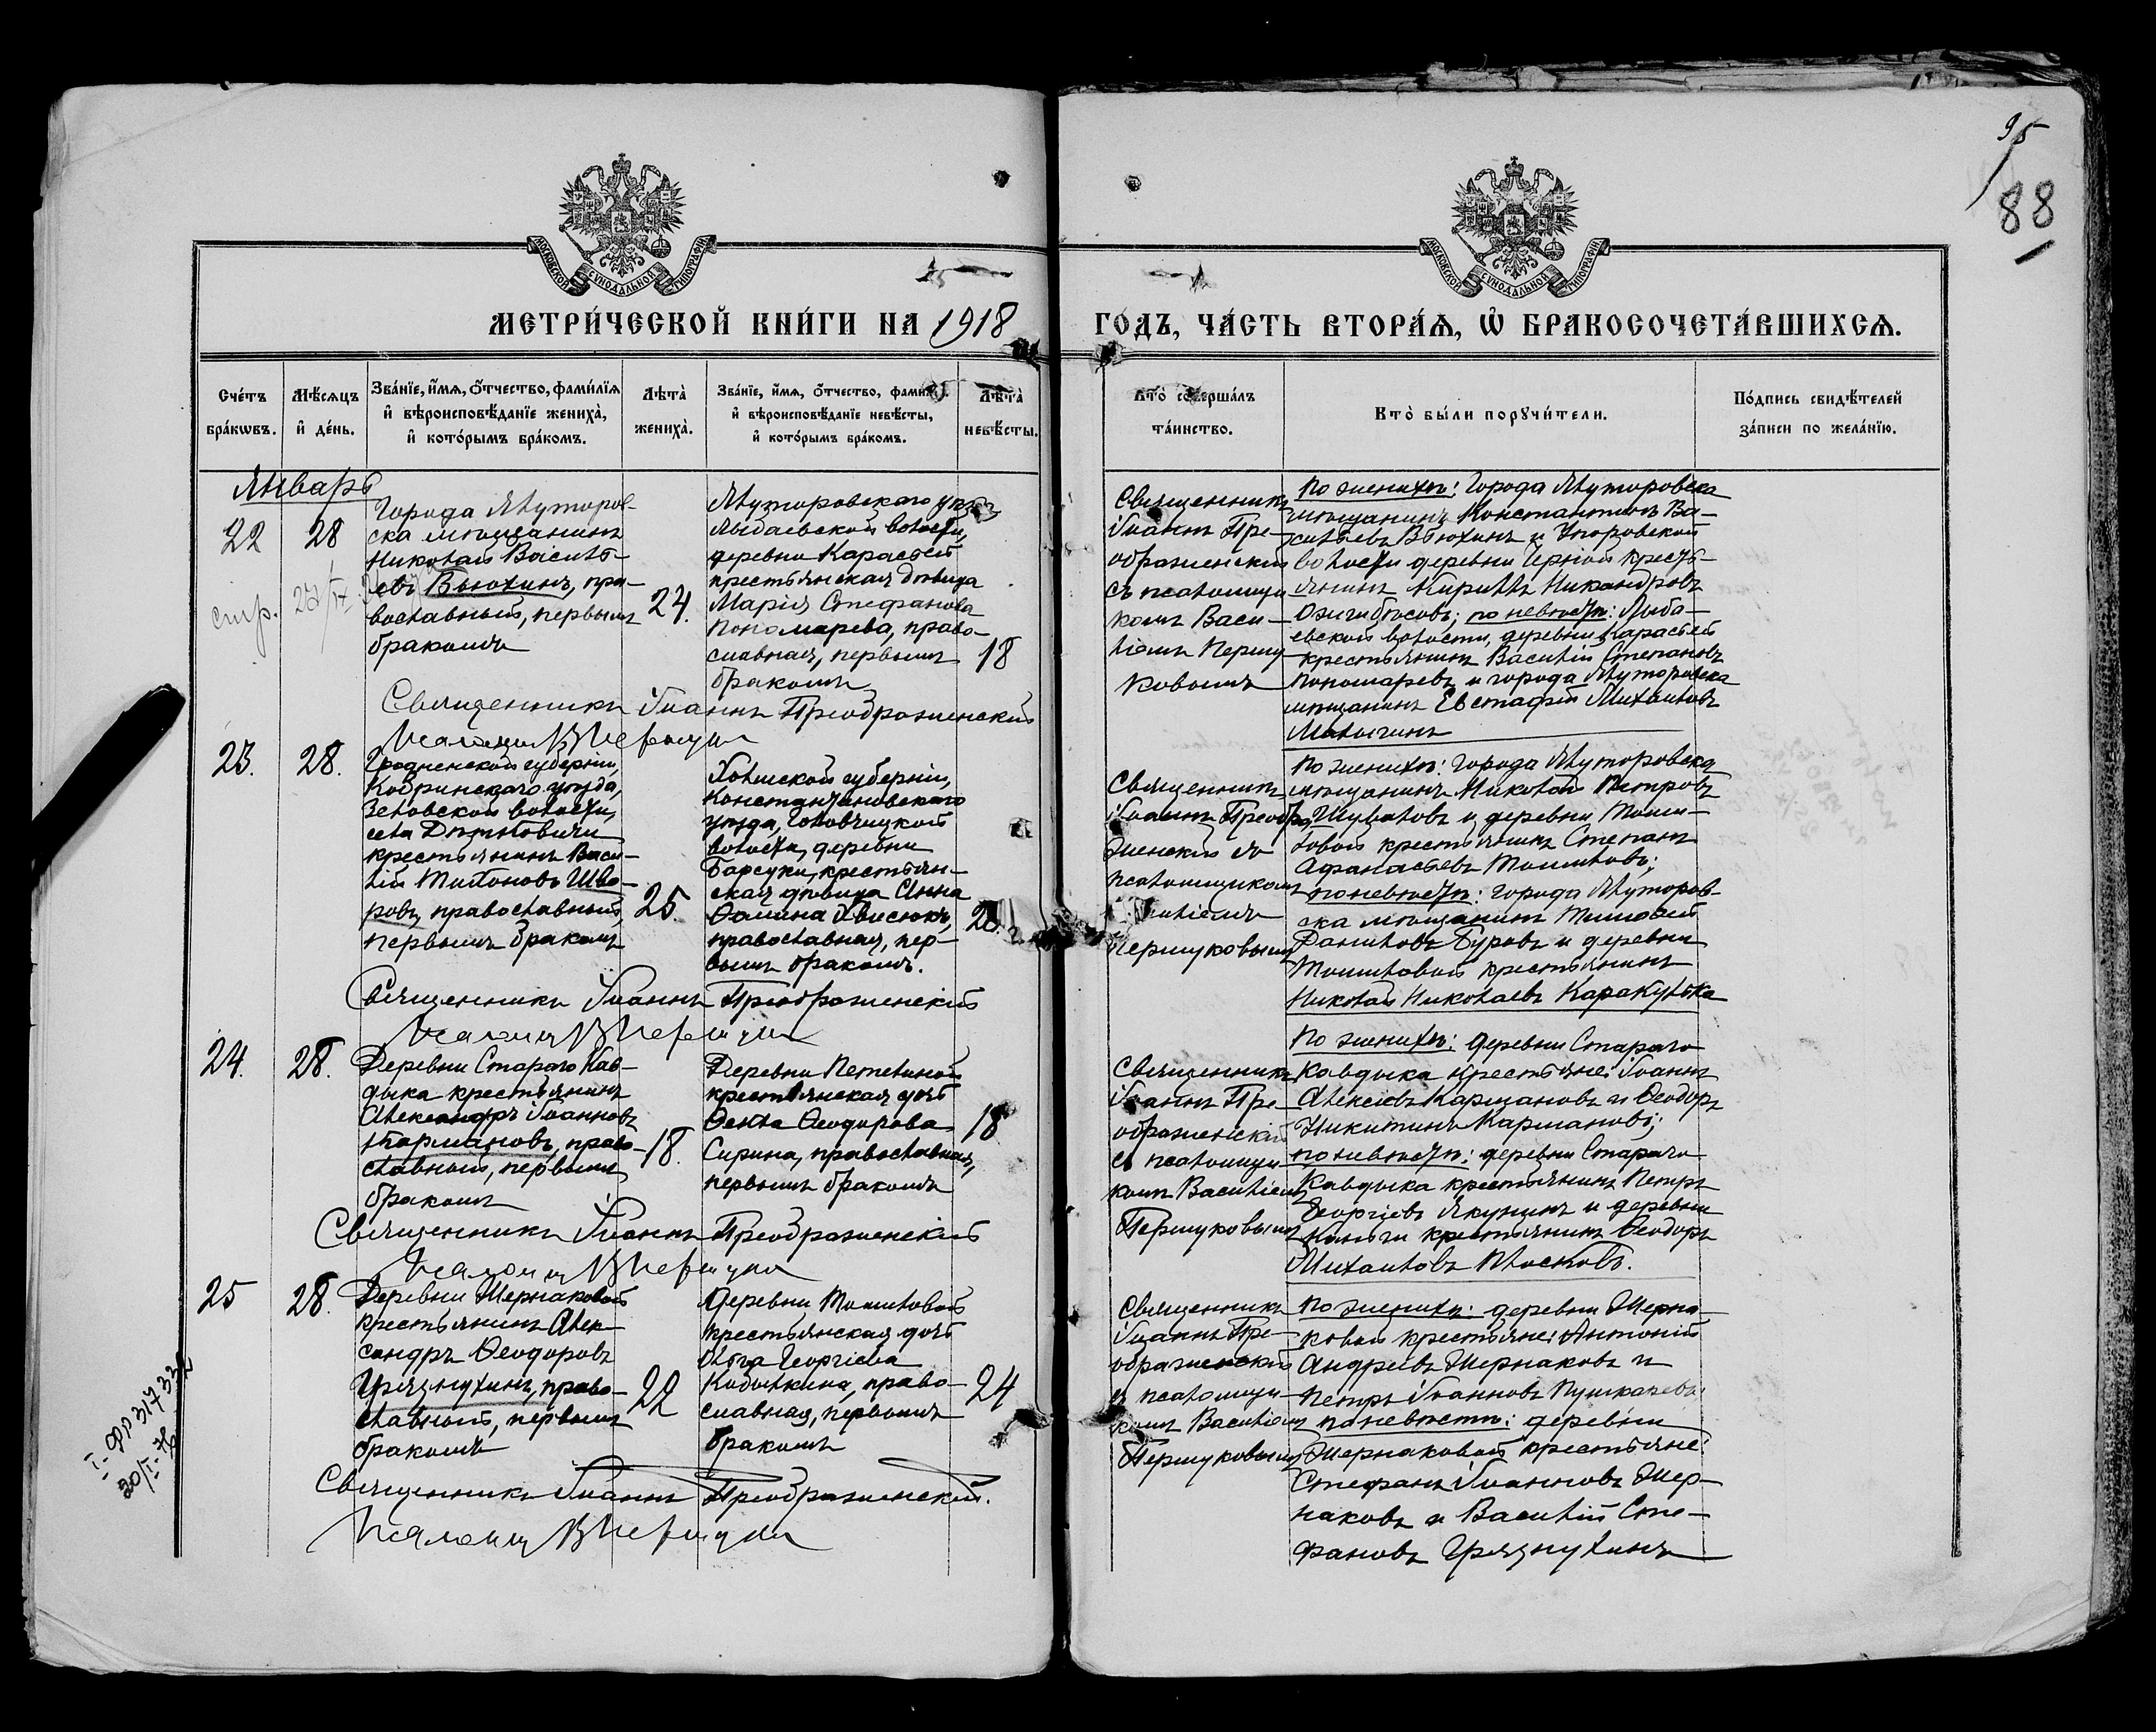 95
88
МОСКОВСКОЙ СѴНОДАЛЬНОЙ ТИПОГРАФІИ
МОСКОВСКОЙ СѴНОДАЛЬНОЙ ТИПОГРАФІИ
МЕТРИ́ЧЕСКОЙ КНИ́ГИ НА 1918
ГО́ДЪ, ЧА́СТЬ ВТОРА́Ѧ, Ѽ БРАКОСОЧЕТА́ВШИХСѦ.
Сче́тъ
бра́кѡвъ.
Мѣ́сѧцъ
и҆ де́нь.
Зва́нїе, и҆́мѧ, ѻ҆́тчество, фами́лїѧ
и҆ вѣроисповѣ́данїе жениха̀,
и҆ кото́рымъ бра́комъ.
Лѣ́та
жениха̀.
Зва́нїе, и҆́мѧ, ѻ҆́тчество, фами́лїѧ
и҆ вѣроисповѣ́данїе невѣ́сты,
и҆ кото́рымъ бра́комъ.
Лѣ́та
невѣ́сты.
Кто̀ соверша́лъ
та́инство.
Кто̀ бы́ли порꙋчи́тели.
По́дпись свидѣ́телей
за́писи по жела́нїю.
Январь
22
28
Города Ялуторов-
ска мѣщанинъ
Николай Василь-
евъ Вьюхинъ, пра-
вославный, первымъ
бракомъ
24.
Ялуторовскаго уѣз
Лыбаевской волости,
деревни Карасьей
крестьянская дѣвица
Марія Стефанова
Пономарева, право-
славная, первымъ
бракомъ
18
Священникъ
Іоаннъ Пре-
ображенскій
съ псаломщи-
комъ Васи-
ліемъ Першу
ковымъ
По женихѣ: города Ялуторовска
мѣщанинъ Константинъ Ва-
сильевъ Вьюхинъ и Упоровской
волости деревни Черной кресть-
янинъ Кириллъ Никандровъ
по невѣстѣ: Лыба-
евской волости, деревни Карасьей
крестьянинъ Василій Степановъ
Пономаревъ и города Ялуторовска
мѣщанинъ Евстафій Михаиловъ
Священникъ Іоаннъ Преображенскій
23.
28.
Гродненской губерніи,
Кобринскаго уѣзда,
волости,
села Дѣтьковичи
крестьянинъ Васи-
лій Тихоновъ Шво-
ровъ, православный,
первымъ бракомъ
25.
Холмской губерніи,
Константиновскаго
уѣзда,
волости, деревни
Барсуки, крестьян-
ская дѣвица Анна
Ѳомина Хвисюкъ,
православная, пер-
вымъ бракомъ.
Священникъ
Іоаннъ Преобра
женскій съ
псаломщикомъ
Першуковымъ
По женихѣ: города Ялуторовска
мѣщанинъ Николай Петровъ
Шуваловъ и деревни Томи-
ловой крестьянинъ Степанъ
Афанасьевъ Томиловъ;
по невѣстѣ: города Ялуторов-
ска мѣщанинъ Тимофей
Даниловъ Буровъ и деревни
Томиловой крестьянинъ
Николай Николаевъ Каракулька
Священникъ Іоаннъ Преображенскій
24.
28.
Деревни Стараго Кав-
дыка крестьянинъ
Александръ Іоанновъ
Кармановъ, право-
славный, первымъ
бракомъ
18.
Деревни Петелиной
крестьянская дочь
Ѳекла Ѳеодорова
Сирина, православная,
первымъ бракомъ
18
Священникъ
Іоаннъ Пре-
ображенскій
съ псаломщи-
комъ Василіемъ
Першуковымъ
По женихѣ: деревни Стараго
Кавдыка крестьяне: Іоаннъ
Алексѣевъ Кармановъ и Ѳеодоръ
Никитинъ Кармановъ;
по невѣстѣ: деревни Стараго
Кавдыка крестьянинъ Петръ
Георгіевъ Якунинъ и деревни
крестьянинъ Ѳеодоръ
Михаиловъ Плосковъ.
Священникъ Іоаннъ Преображенскій
25
28.
Деревни Жернаковой
крестьянинъ Алек-
сандръ Ѳеодоровъ
Грязнухинъ, право-
славный, первымъ
бракомъ
22
Деревни Томиловой
крестьянская дочь
Ольга Георгіева
Кобылкина, право-
славная, первымъ
бракомъ
24
Священникъ
Іоаннъ Пре-
ображенскій
съ псаломщи-
комъ Василіемъ
Першуковымъ
По женихѣ: деревни Жерна-
ковой крестьяне: Антоній
Андреевъ Жернаковъ и
Петръ Іоанновъ Пушкаревъ;
по невѣстѣ: деревни
Жернаковой крестьяне:
Стефанъ Іоанновъ Жер-
наковъ и Василій Сте-
фановъ Грязнухинъ
Священникъ Іоаннъ Преображенскій.